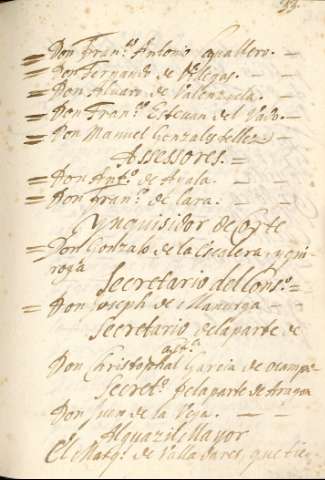 Don Fran.co Antonio Caualtero.
Don Fernando de Villegas.
Don Aluaro de Valenzuela.
Don Fran.co Esteuan del Vado.
Don Manuel Gonzales tellez
Assessores.
Don Ant.o de Ayala.
Don Fran.co de Lara.
Ynquisidor de Corte
Don Gonzalo de la Escalera, y qui
roga
Secretario del Cons.o
Don Joseph de
Secretario de la parte de
Don Christophal Garcia de ocampo
Secret.o de la parte de Aragon
Don Juan de la Veja.
Alguazil Mayor
El Marq.s de Valladares, que tie